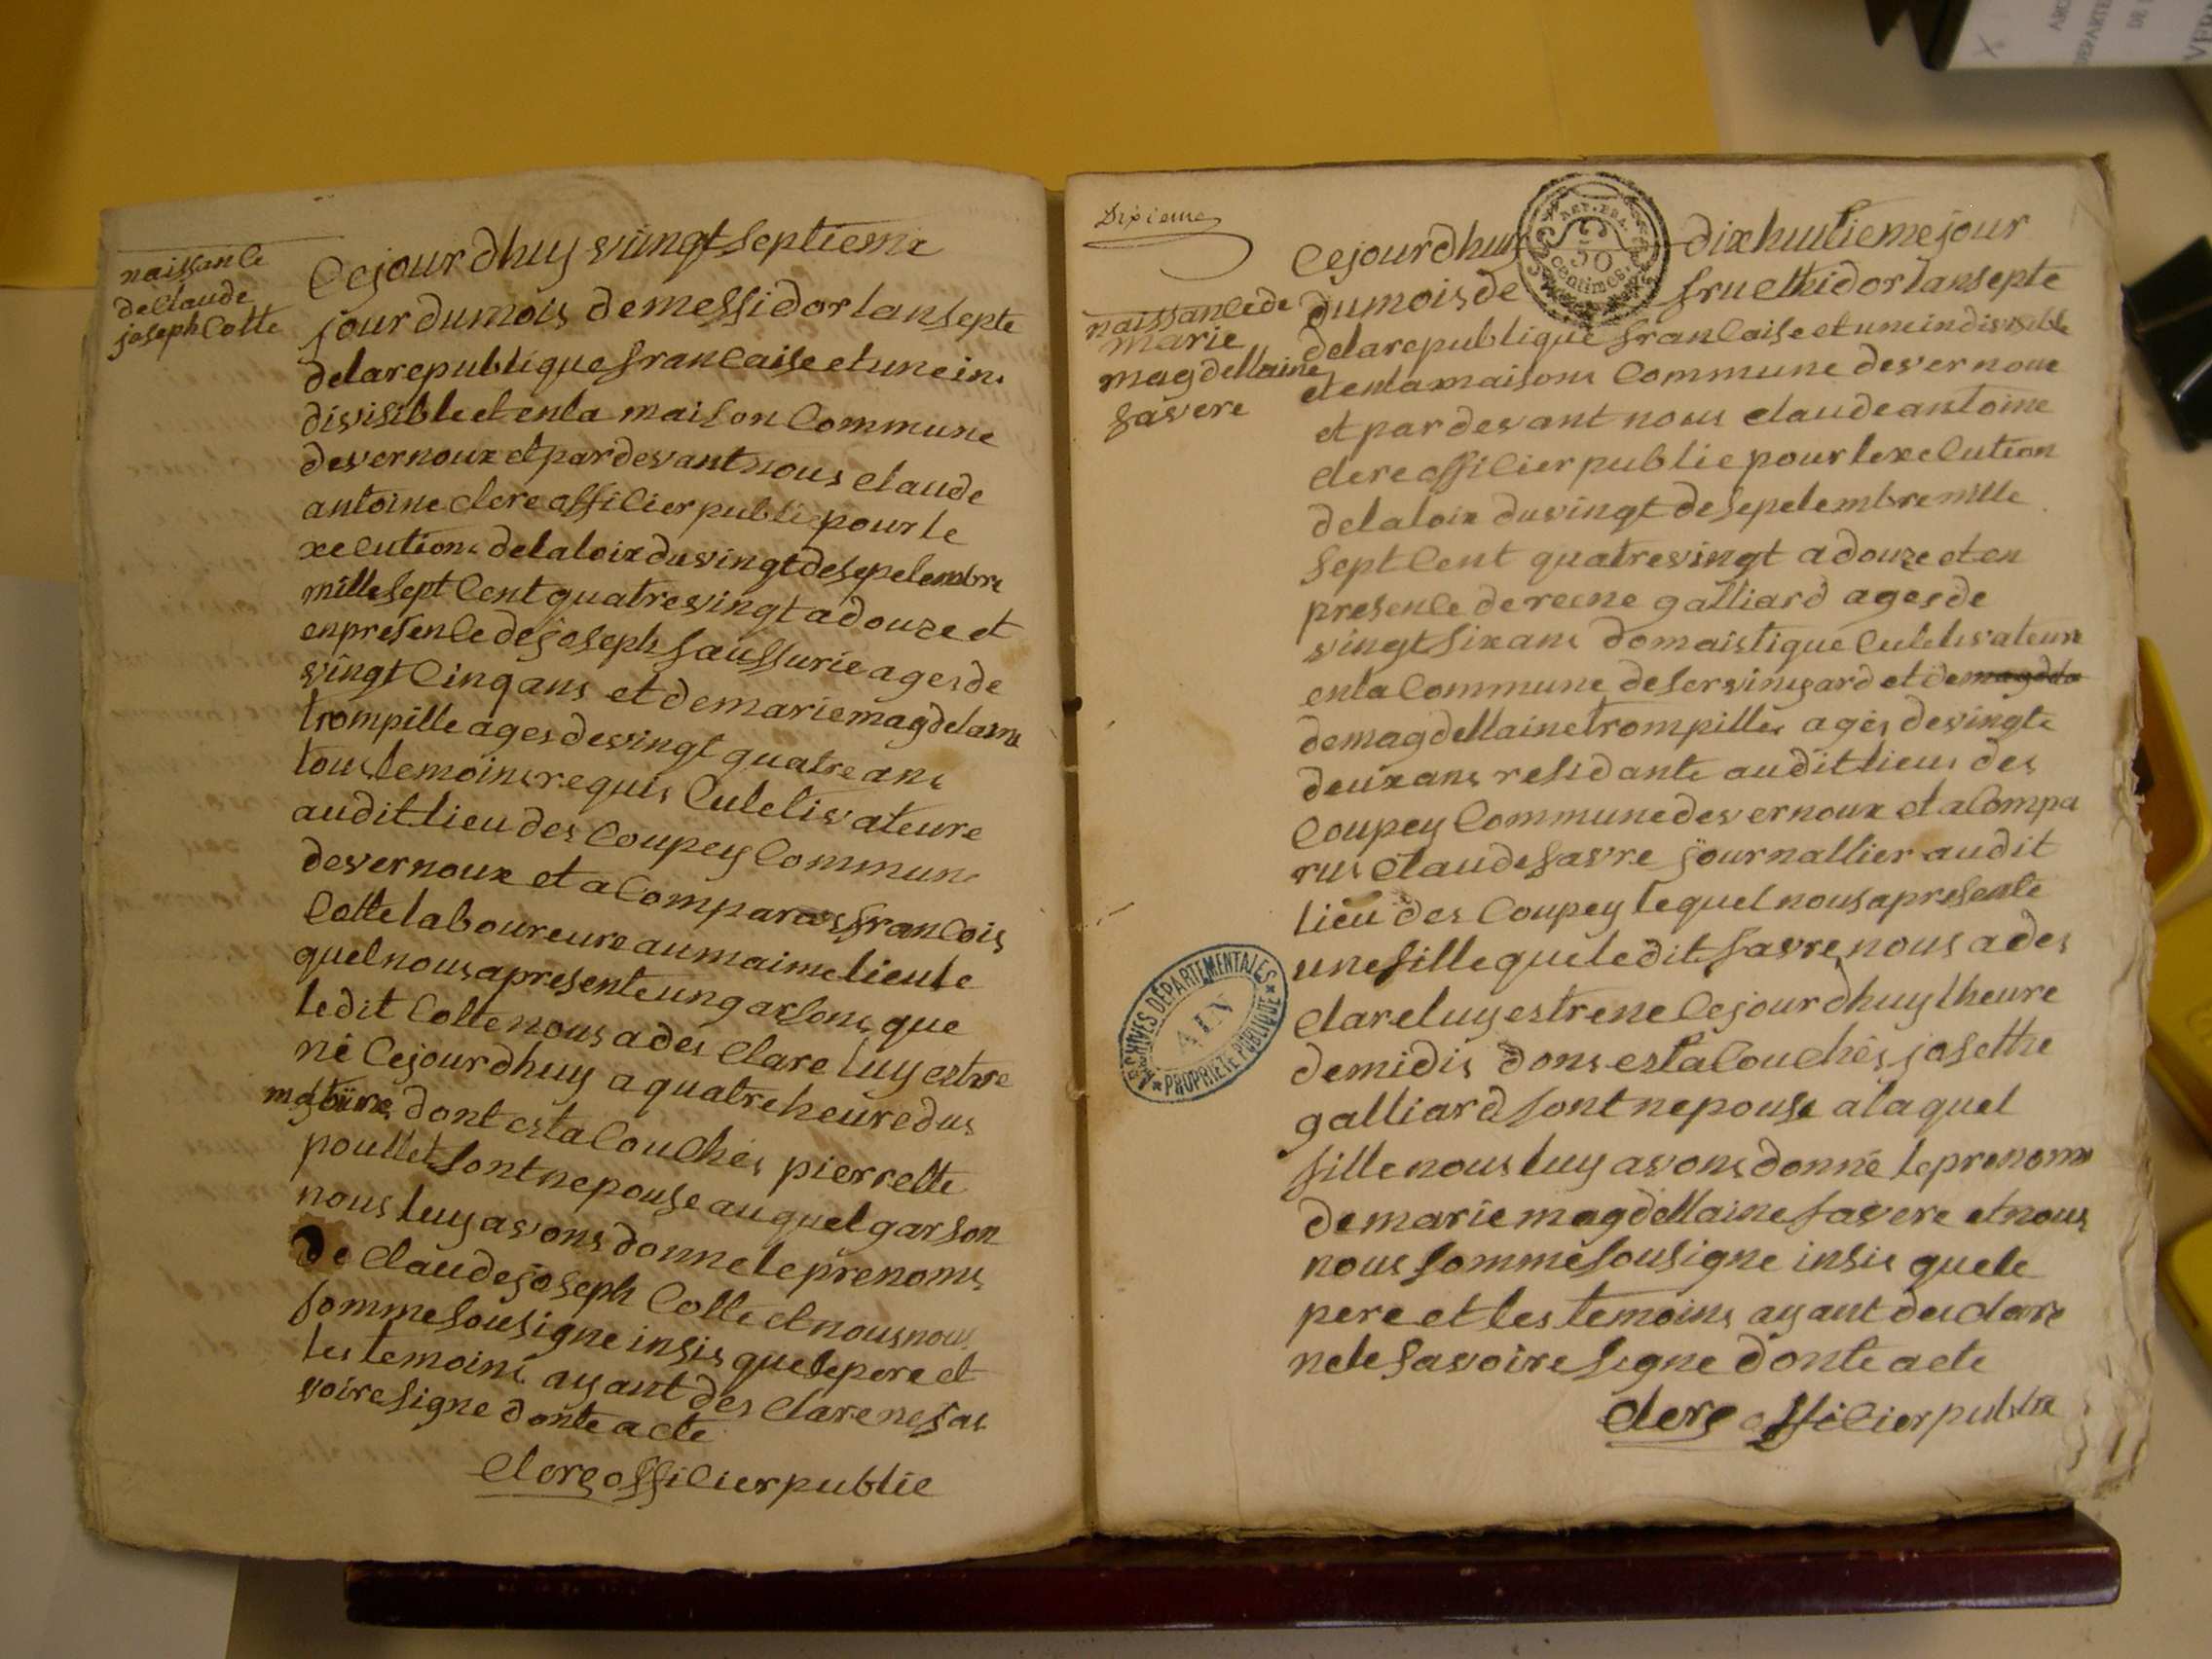 naissance
de Claude
joseph Cotte
Cejourdhuy vingt septieme
jour du mois de messidor lan septe
de la republique francaise et une in
divisible et en la maison Commune
de vernoux et par devant nous claude
antoine clerc officier public pour le
xecution de la loix du vingt de sepetembre
mille sept Cent quatre vingt a douze et
en presence de joseph
vingt Cinq ans et de marie magdelaine
trompille ages de vingt quatre ans
tous temoins requis Culetivateure
audit lieu des Coupey Commune
de vernoux et a Comparus francois
Cotte laboureure au maime lieu le
quel nous a presente un garsons que
ledit Cotte nous a des Clare luy estre
né Cejourdhuy a quatre heure dus
matins dont est a Couchés pierrette
poullet sont nepouse auquel garson
nous luy avons donne le prenoms
de Claude joseph Cotte et nous nous
somme sousigne insis que le pere et
les temoins ayant des Clare ne sa
voire signe donte acte
Clerc officier public
Dixieme
REP. FRA.
50
centimes.
naissance de
marie
magdellaine
favere
Cejourdhuy dix huitieme jour
du mois de fructhidor lan septe
de la republique francaise et une indivisible
et en la maisons Commune de vernoux
et par devant nous claude antoine
clerc officier public pour lexecution
de la loix du vingt de sepetembre mille
sept Cent quatre vingt a douze et en
presence de reene galliard ages de
vingt six ans domaistique Culetivateure
en la Commune de servingard et de magdela
de magdellaine trompilles agés de vingte
deux ans residante audit lieu des
Coupey Commune de vernoux et a Compa
rus Claude favre journallier audit
lieu des Coupey lequel nous a presente
une fille que ledit favre nous a des
clare luy estre ne Cejourdhuy lheure
de midis dons est a Couchés josethe
galliard sont nepouse a laquel
fille nous luy avons donné le prenoms
de marie magdellaine favere et nous
nous somme sousigne insis que le
pere et les temoins ayant des clare
ne le savoire signe donte acte
clerc officier public
ARCHIVES DÉPARTEMENTALES
AIN
* PROPRIÉTÉ PUBLIQUE *